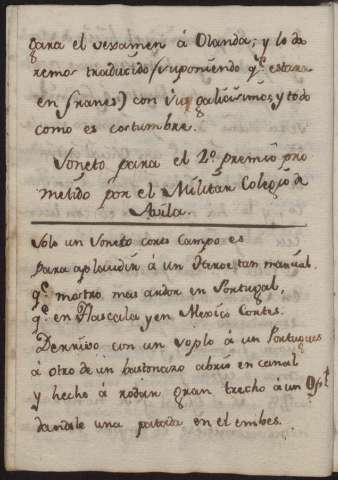 para el vexamen á Olanda; y lo da
remos traducido (suponiendo q.e estara
en franes) con sus galicismos, y todo
como es costumbre.
Soneto para el 2º premio pro
metido por el Militar Colegio de
Avila.
Solo un Soneto corto Campo es
para aplaudir á un Heroe tan marcial,
q.e mostro mas ardor en Portugal,
q.e en Tlascala y en Mexico Cortes.
Derrivo con un soplo á un Portugues
á otro de un bastonazo abrio en canal
y hecho á rodar gran trecho á un
dandole una patada en el embes.